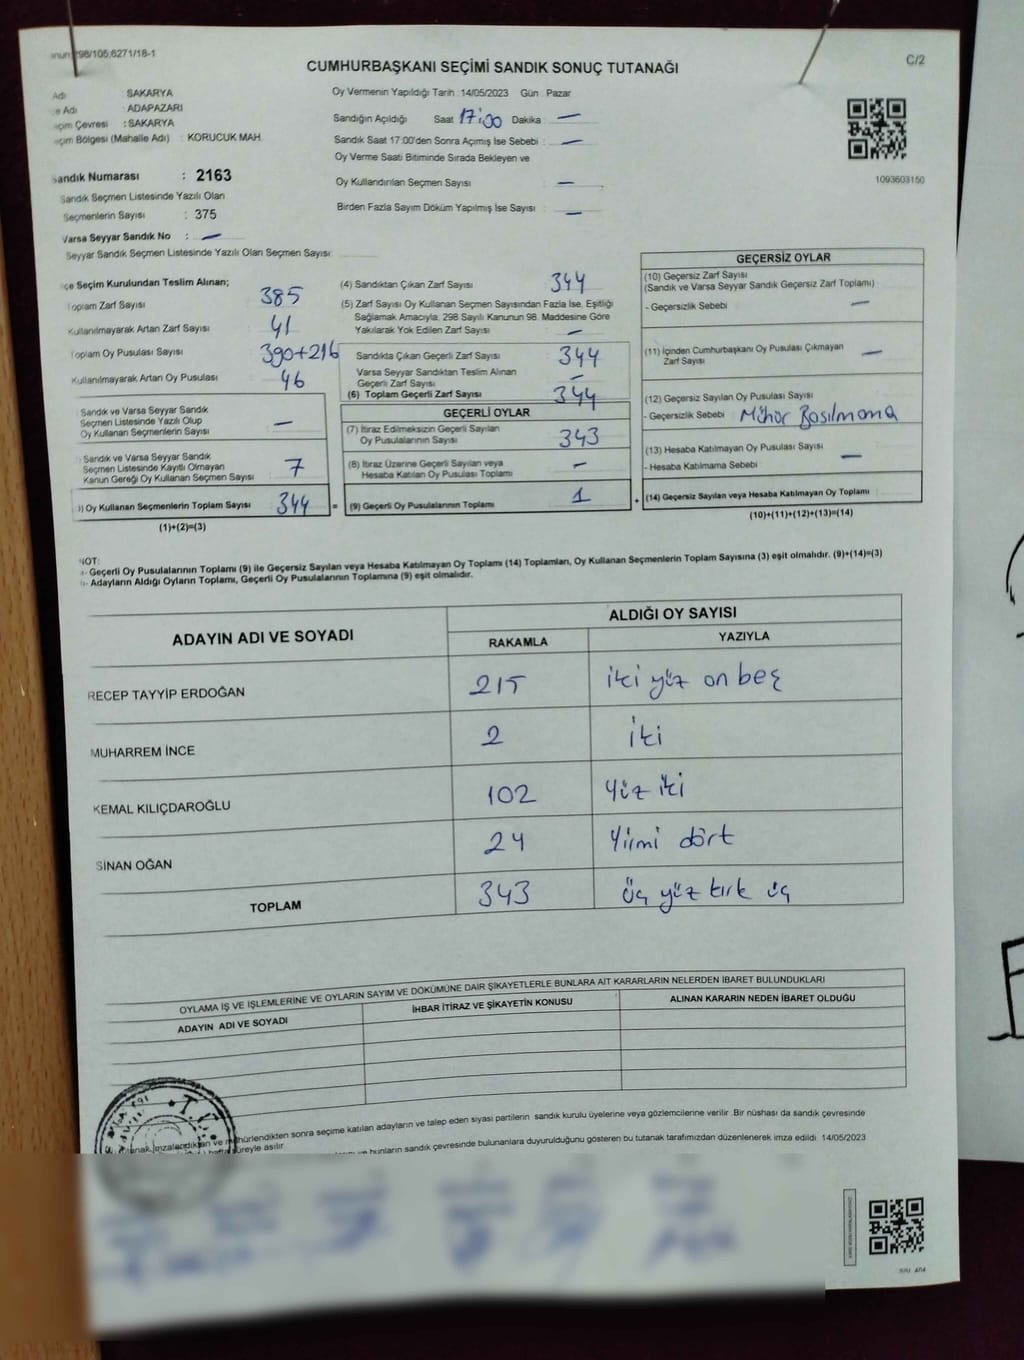 298/105;6271/18-1
C/2
CUMHURBAŞKANI SEÇİMİ SANDIK SONUÇ TUTANAĞI
Adı SAKARYA
Adı : ADAPAZARI
Çevresi : SAKARYA
Bölgesi (Mahalle Adı) : KORUCUK MAH.
Sandık Numarası : 2163
Sandık Seçmen Listesinde Yazılı Olan
Seçmenlerin Sayısı : 375
Varsa Seyyar Sandık No : —
Seyyar Sandık Seçmen Listesinde Yazılı Olan Seçmen Sayısı:
Oy Vermenin Yapıldığı Tarih : 14/05/2023 Gün : Pazar
Sandığın Açıldığı Saat 17:00 Dakika : —
Sandık Saat 17:00'den Sonra Açımış İse Sebebi : —
Oy Verme Saati Bitiminde Sırada Bekleyen ve
Oy Kullandırılan Seçmen Sayısı : —
Birden Fazla Sayım Döküm Yapılmış İse Sayısı : —
1093603150
Seçim Kurulundan Teslim Alınan;
Toplam Zarf Sayısı 385
Kullanılmayarak Artan Zarf Sayısı 41
Toplam Oy Pusulası Sayısı 390+216
Kullanılmayarak Artan Oy Pusulası 46
Sandık ve Varsa Seyyar Sandık
Seçmen Listesinde Yazılı Olup
Oy Kullanan Seçmenlerin Sayısı —
Sandık ve Varsa Seyyar Sandık
Seçmen Listesinde Kayıtlı Olmayan
Kanun Gereği Oy Kullanan Seçmen Sayısı 7
) Oy Kullanan Seçmenlerin Toplam Sayısı 344 =
(1)+(2)=(3)
(4) Sandıktan Çıkan Zarf Sayısı 344
(5) Zarf Sayısı Oy Kullanan Seçmen Sayısından Fazla İse, Eşitliği
Sağlamak Amacıyla, 298 Sayılı Kanunun 98. Maddesine Göre
Yakılarak Yok Edilen Zarf Sayısı —
Sandıkta Çıkan Geçerli Zarf Sayısı 344
Varsa Seyyar Sandıktan Teslim Alınan
Geçerli Zarf Sayısı —
(6) Toplam Geçerli Zarf Sayısı 344
GEÇERLİ OYLAR
(7) İtiraz Edilmeksizin Geçerli Sayılan
Oy Pusulalarının Sayısı 343
(8) İtiraz Üzerine Geçerli Sayılan veya
Hesaba Katılan Oy Pusulası Toplamı —
(9) Geçerli Oy Pusulalarının Toplamı 1 +
GEÇERSİZ OYLAR
(10) Geçersiz Zarf Sayısı
(Sandık ve Varsa Seyyar Sandık Geçersiz Zarf Toplamı)
- Geçersizlik Sebebi —
(11) İçinden Cumhurbaşkanı Oy Pusulası Çıkmayan
Zarf Sayısı —
(12) Geçersiz Sayılan Oy Pusulası Sayısı
- Geçersizlik Sebebi Mühür Basılmama
(13) Hesaba Katılmayan Oy Pusulası Sayısı
- Hesaba Katılmama Sebebi —
(14) Geçersiz Sayılan veya Hesaba Katılmayan Oy Toplamı
(10)+(11)+(12)+(13)=(14)
NOT:
- Geçerli Oy Pusulalarının Toplamı (9) ile Geçersiz Sayılan veya Hesaba Katılmayan Oy Toplamı (14) Toplamları, Oy Kullanan Seçmenlerin Toplam Sayısına (3) eşit olmalıdır. (9)+(14)=(3)
- Adayların Aldığı Oyların Toplamı, Geçerli Oy Pusulalarının Toplamına (9) eşit olmalıdır.
ADAYIN ADI VE SOYADI
ALDIĞI OY SAYISI
RAKAMLA YAZIYLA
RECEP TAYYİP ERDOĞAN 215 iki yüz on beş
MUHARREM İNCE 2 iki
KEMAL KILIÇDAROĞLU 102 Yüz iki
SİNAN OĞAN 24 Yirmi dört
TOPLAM 343 üç yüz kırk üç
OYLAMA İŞ VE İŞLEMLERİNE VE OYLARIN SAYIM VE DÖKÜMÜNE DAİR ŞİKAYETLERLE BUNLARA AİT KARARLARIN NELERDEN İBARET BULUNDUKLARI
ADAYIN ADI VE SOYADI İHBAR İTİRAZ VE ŞİKAYETİN KONUSU ALINAN KARARIN NEDEN İBARET OLDUĞU
mühürlendikten sonra seçime katılan adayların ve talep eden siyasi partilerin sandık kurulu üyelerine veya gözlemcilerine verilir. Bir nüshası da sandık çevresinde
süreyle asılır.
ve bunların sandık çevresinde bulunanlara duyurulduğunu gösteren bu tutanak tarafımızdan düzenlenerek imza edildi. 14/05/2023